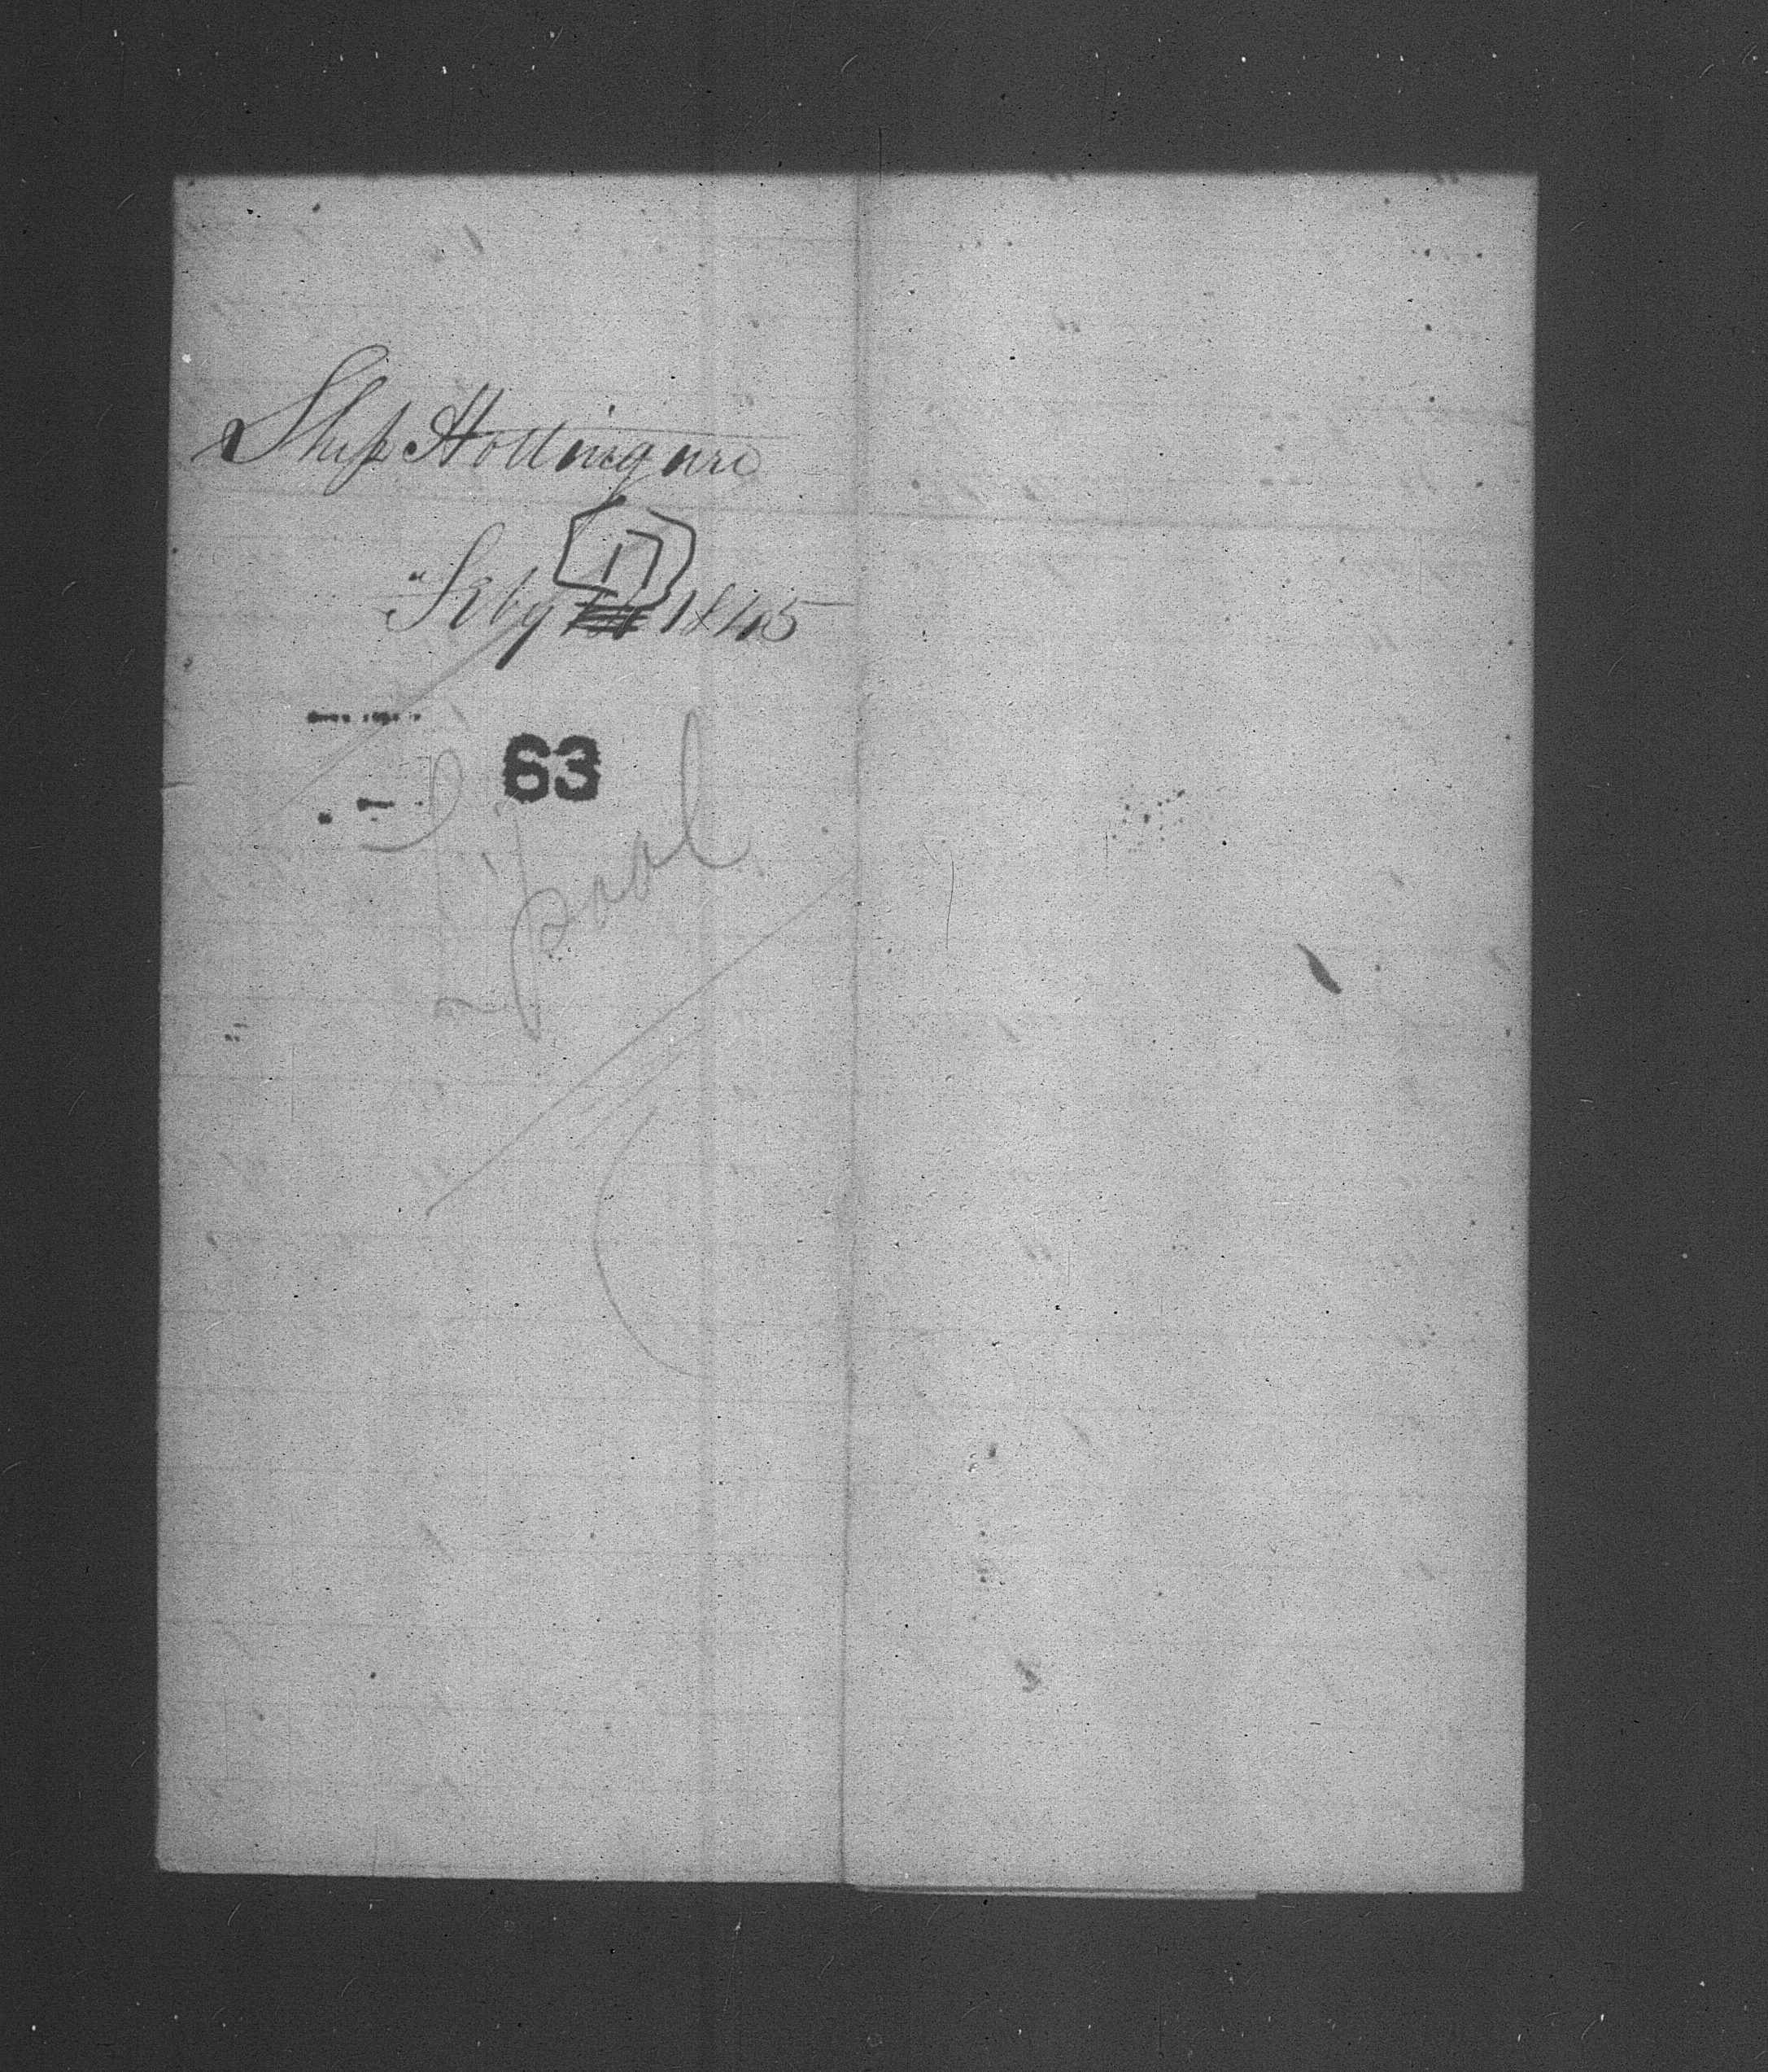 Ship Hottinguer
17
Feby 1845
63
L'pool